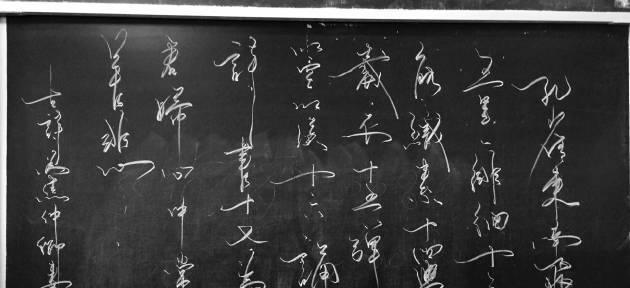 孔雀東南飛
五里一徘徊十三
能織素十四學
裁衣十五彈
箜篌十六誦
詩書十七為
君婦心中常
苦悲
古詩為焦仲卿妻